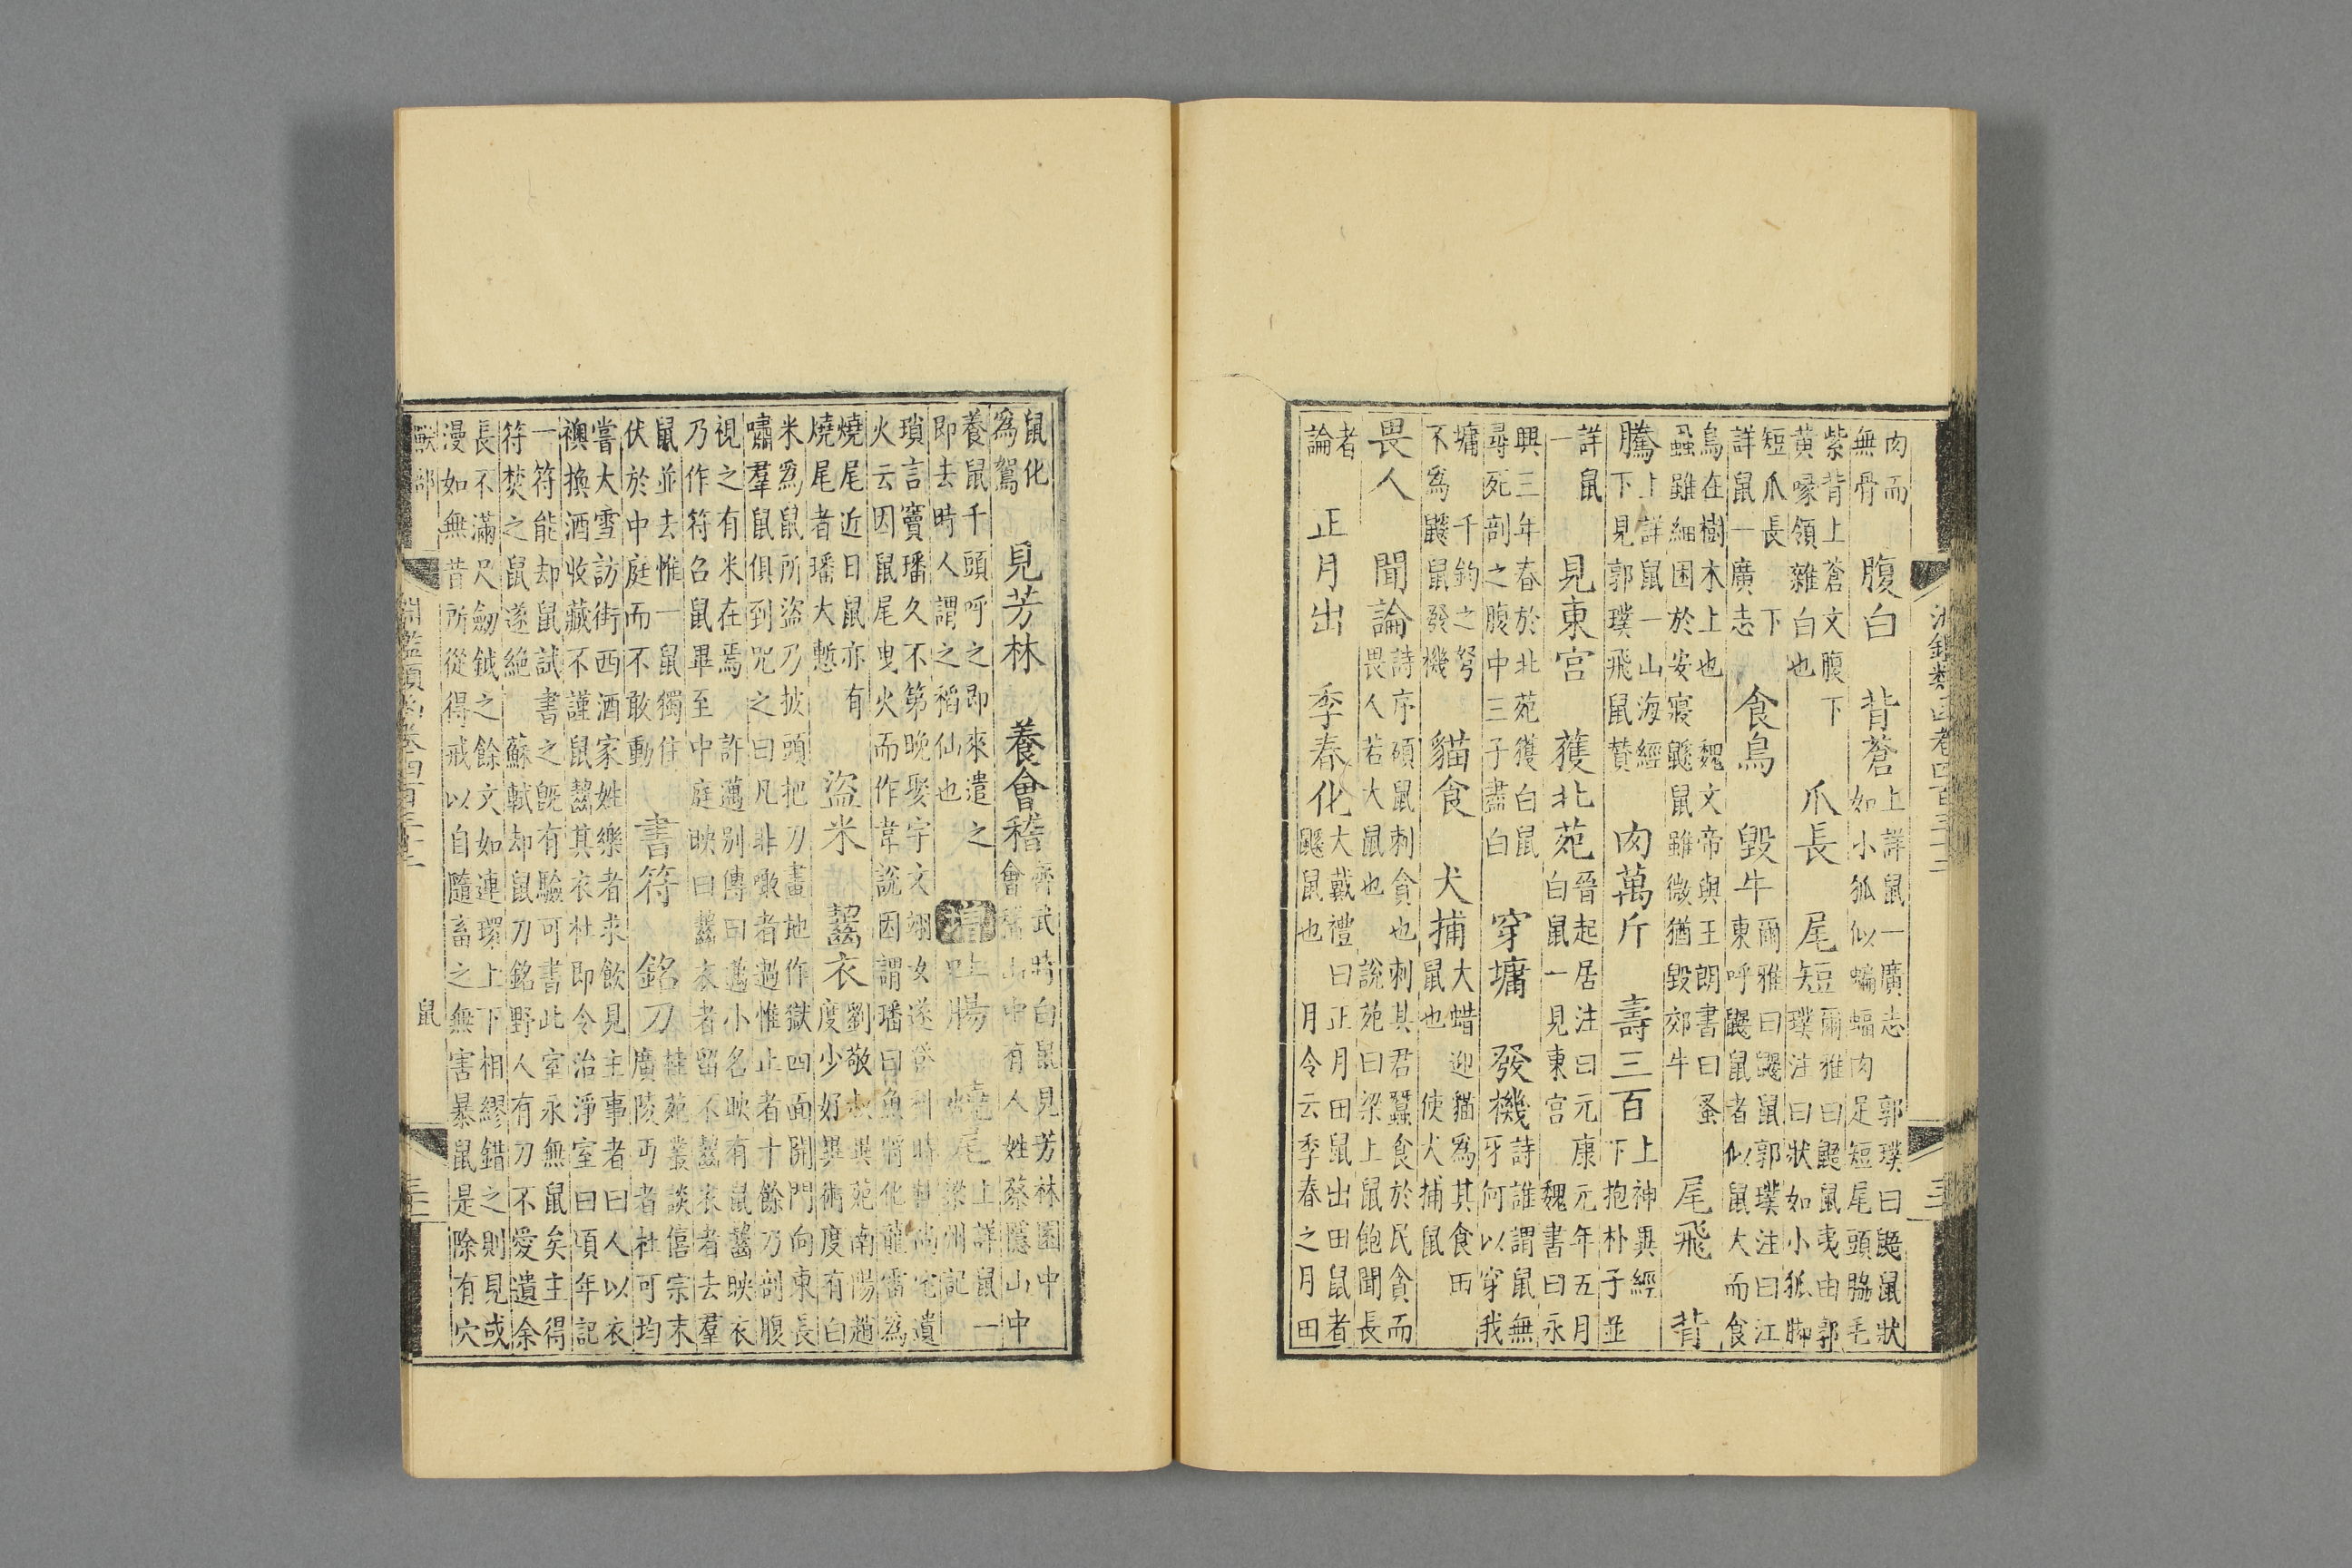 肉而
無骨
腹白　背蒼
上詳鼠一廣志　郭璞曰鼯鼠狀
如小狐似蝙蝠肉足短尾頭脇毛
紫背上蒼文腹下
黃喙頷雜白也
爪長　尾短
爾雅曰鼯鼠夷由郭
璞注曰狀如小狐脚
短爪長　下
詳鼠一廣志
食鳥　毀牛
爾雅曰鼷鼠郭璞注曰江
東呼鼷鼠者似鼠大而食
鳥在樹木上也　魏文帝與王朗書曰蚤
蝨雖細困於安寢鼷鼠雖微猶毀郊牛
尾飛　背
騰
上詳鼠一山海經
下見郭璞飛鼠贊
肉萬斤　壽三百
上神異經
下抱朴子並
詳鼠
一
見東宮　獲北苑
晉起居注曰元康元年五月
白鼠一見東宮　魏書曰永
興三年春於北苑獲白鼠
尋死剖之腹中三子盡白
穿墉　發機
詩誰謂鼠無
牙何以穿我
墉　千鈞之弩
不爲鼷鼠發機
貓食　犬捕
大蜡迎貓爲其食田
鼠也　使犬捕鼠
畏人　聞論
詩序碩鼠刺貪也刺其君蠶食於民貪而
畏人若大鼠也　說苑曰梁上鼠飽聞長
者
論
正月出　季春化
大戴禮曰正月田鼠出田鼠者
鼸鼠也　月令云季春之月田
鼠化
爲鴽
見芳林　養會稽
齊武時白鼠見芳林園中
會稽山中有人姓蔡隱山中
養鼠千頭呼之即來遣之
即去時人謂之稻仙也
增　吐腸　燒尾
上詳鼠一
梁州記
瑣言竇璠久不第晚娶宇文翃女遂登科時
宅遺
火云因鼠尾曳火而作韋說因謂璠曰魚將化龍雷爲
燒尾近日鼠亦有
燒尾者璠大慙
盜米　齧衣
劉敬叔異苑南陽趙
度少好異術度有白
米爲鼠所盜乃披頭把刀畫地作獄四面開門向東長
嘯羣鼠俱到咒之曰凡非噉者過惟止者十餘乃剖腹
視之有米在焉　許邁別傳曰邁小名映有鼠齧映衣
乃作符召鼠畢至中庭映曰齧衣者留不齧衣者去羣
鼠並去惟一鼠獨住
伏於中庭而不敢動
書符　銘刀
桂苑叢談僖宗末
廣陵丐者杜可均
嘗大雪訪街西酒家姓樂者求飲見主事者曰人以衣
襖換酒收藏不謹鼠齧其衣杜即令治淨室曰頃年記
一符能却鼠試書之旣有驗可書此室永無鼠矣主得
符焚之鼠遂絶　蘇軾却鼠刀銘野人有刀不愛遺余
長不滿尺劒鉞之餘文如連環上下相繆錯之則見或
漫如無昔所從得戒以自隨畜之無害暴鼠是除有穴
獸部　淵鑑類函卷四百三十二　鼠　三